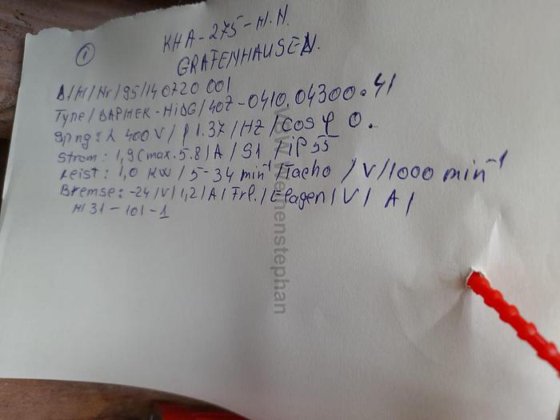 ①
KHA-275-H.H.
GRAFENHAUSEN.
D/M/Nr/95/140720 001
Type/BAPHER-HiDG/407-0410.04300.41
Spng: λ 400V/f 1.37/HZ/cos φ 0.
Strom: 1,9(max. 5.8/A/S1/iP55
Leist: 1,0 KW/5-34 min⁻¹/Tacho/V/1000 min⁻¹
Bremse: -24/V/1,2/A/Frl./Elagen/V/A/
H31-101-1
www.rehenstephan